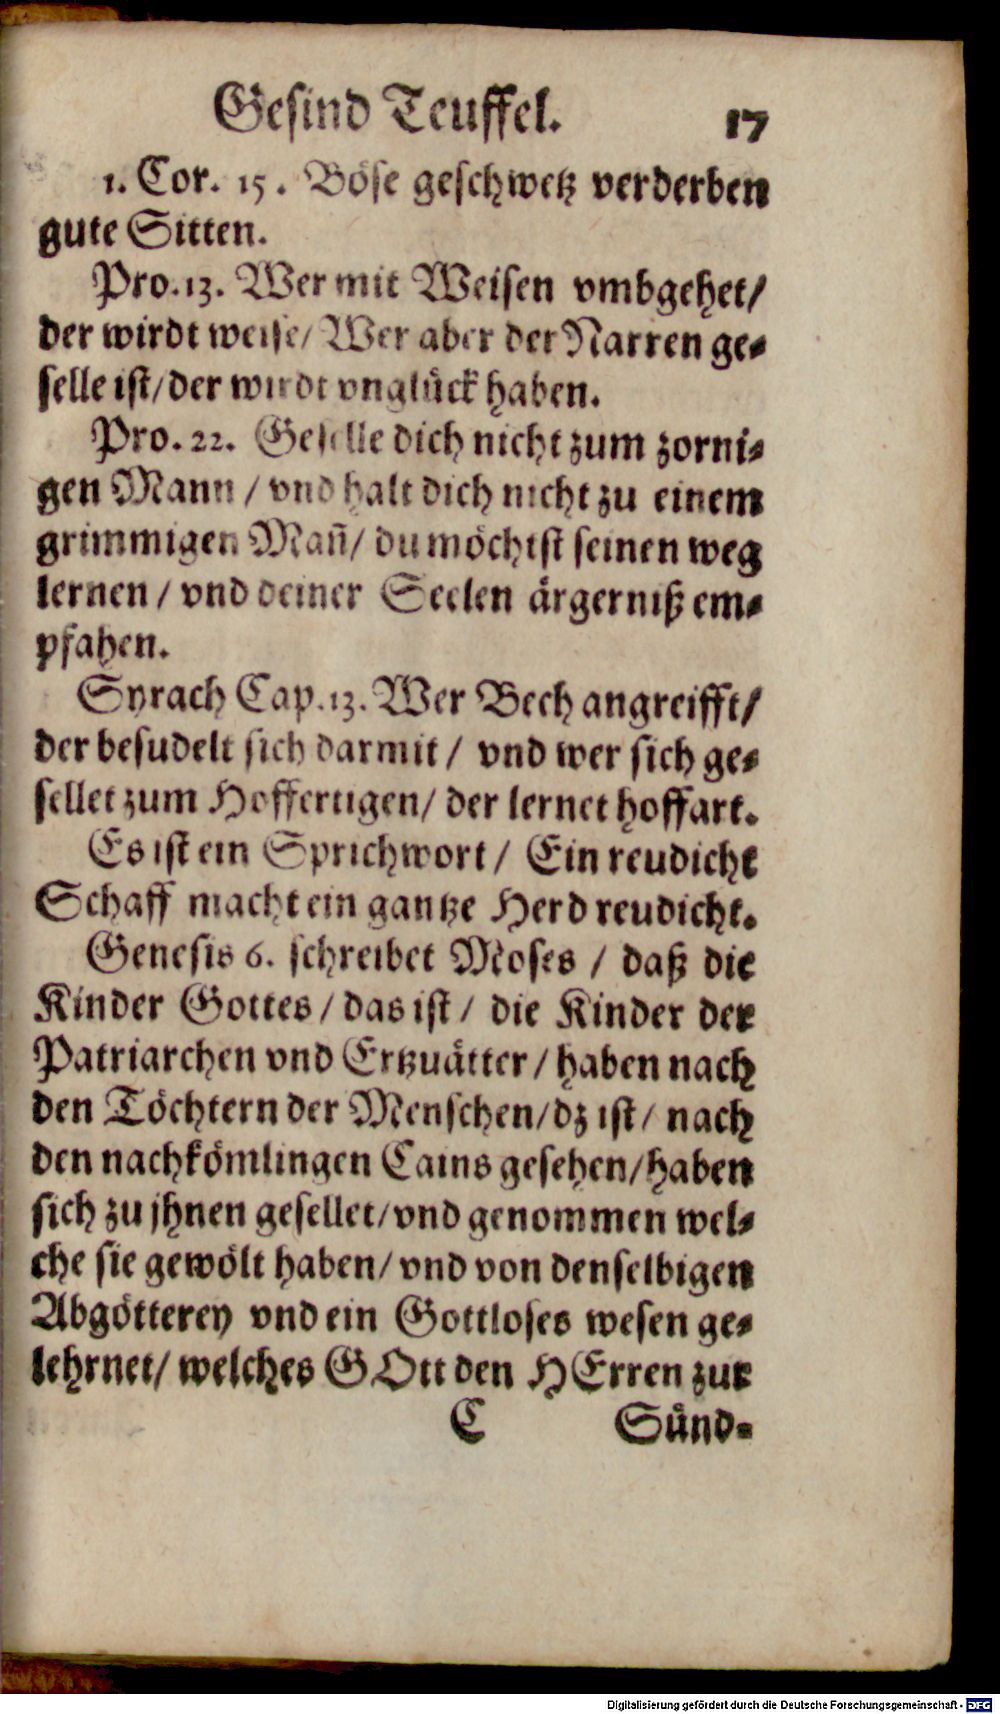 Gesind Teuffel. 17
1. Cor. 15. Böse geschwetz verderben
gute Sitten.
Pro. 13. Wer mit Weisen vmbgehet/
der wirdt weise/ Wer aber der Narren ge-
selle ist/ der wirdt vnglück haben.
Pro. 22. Geselle dich nicht zum zorni-
gen Mann / vnd halt dich nicht zu einem
grimmigen Mañ/ du möchtst seinen weg
lernen / vnd deiner Seelen ärgerniß em-
pfahen.
Syrach Cap. 13. Wer Bech angreifft/
der besudelt sich darmit / vnd wer sich ge-
sellet zum Hoffertigen/ der lernet hoffart.
Es ist ein Sprichwort / Ein reudicht
Schaff macht ein gantze Herd reudicht.
Genesis 6. schreibet Moses / daß die
Kinder Gottes / das ist / die Kinder der
Patriarchen vnd Ertzuätter / haben nach
den Töchtern der Menschen/ dz ist / nach
den nachkömlingen Cains gesehen/ haben
sich zu jhnen gesellet/ vnd genommen wel-
che sie gewölt haben/ vnd von denselbigen
Abgötterey vnd ein Gottloses wesen ge-
lehrnet/ welches GOtt den HErren zur
C Sünd-
Digitalisierung gefördert durch die Deutsche Forschungsgemeinschaft - DFG